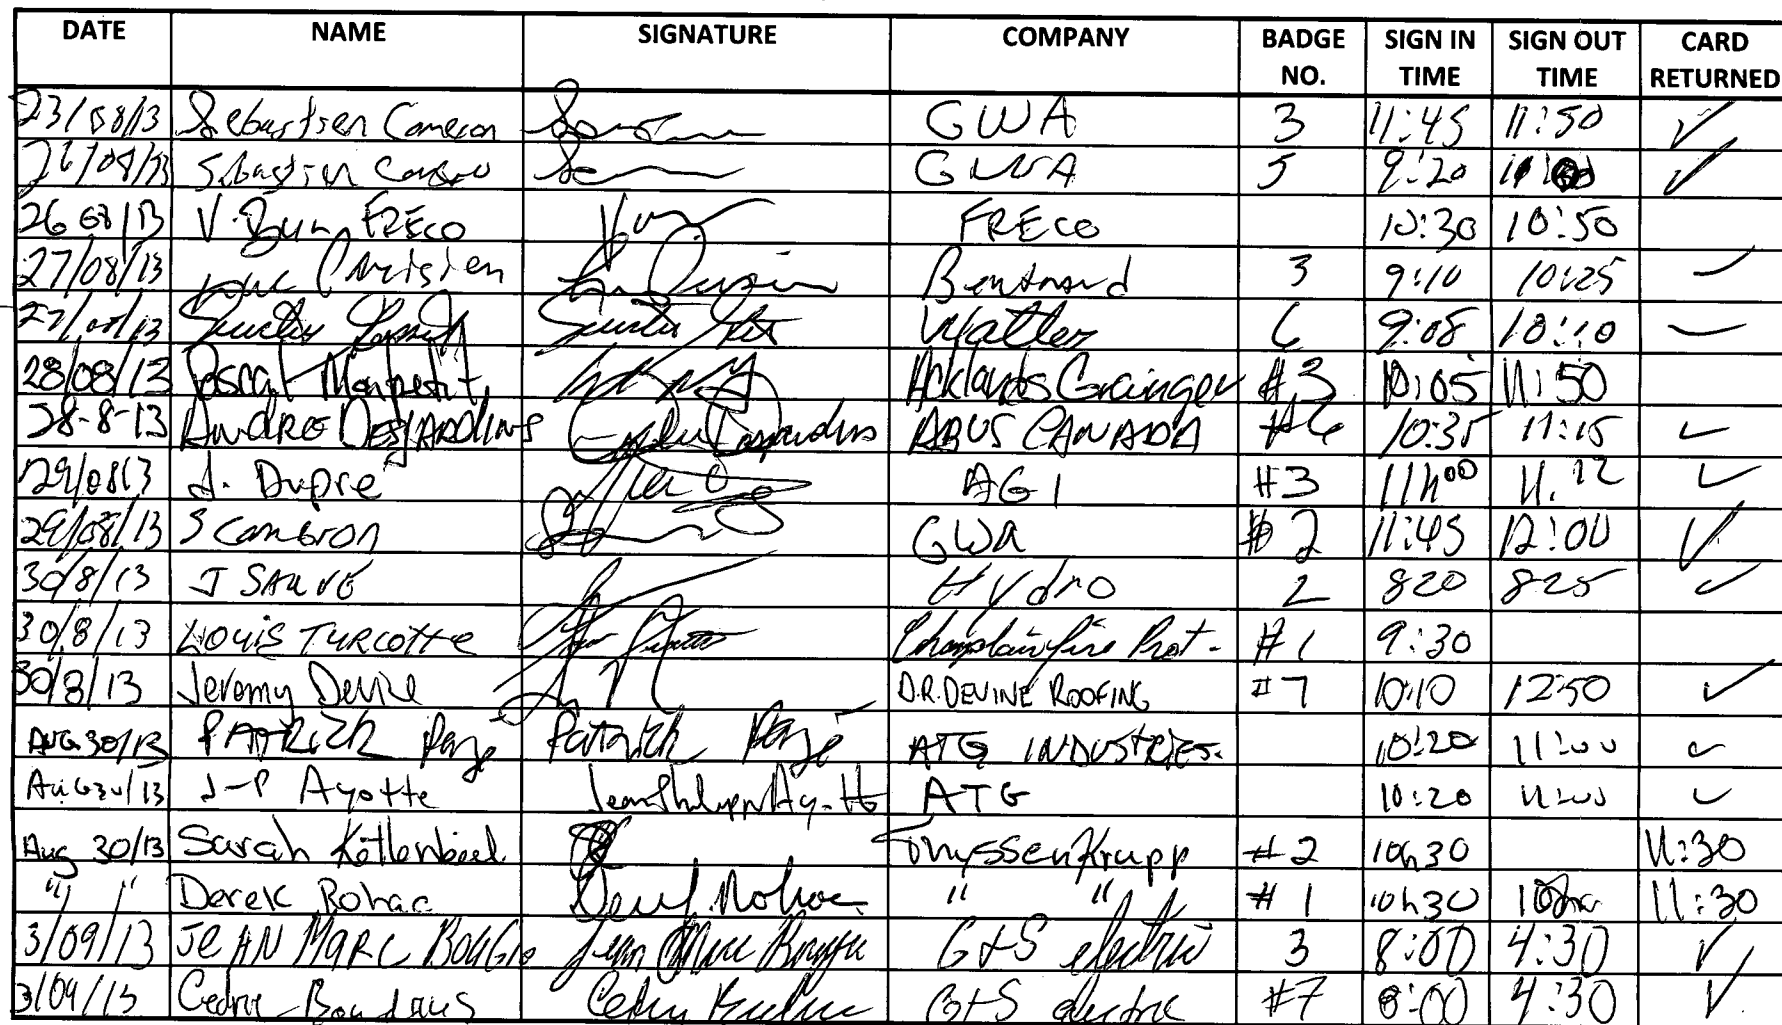 DATE NAME SIGNATURE COMPANY BADGE NO. SIGN IN TIME SIGN OUT TIME CARD RETURNED
23/08/13 Sebastien Cameron GWA 3 11:45 11:50 ✓
26/08/13 Sebastien GWA 5 9:20 ✓
26 08/13 V. FRECO FRECO 10:30 10:50
27/08/13 3 9:10 10:25
27/08/13 6 9:08 10:10
28/08/13 Acklands Grainger #3 10:05 11:50
28-8-13 ANDRE DESJARDINS ABUS CANADA #6 10:35 11:15 ✓
29/08/13 J. Dupré AGI #3 11h00 11:12 ✓
29/08/13 S Cameron GWA #2 11:45 12:00 ✓
30/8/13 J SAUVÉ Hydro 2 820 825 ✓
30/8/13 LOUIS TURCOTTE Champlain fire Prot- #1 9:30
30/8/13 Jeremy Devine D.R. DEVINE ROOFING #7 10:10 12:50 ✓
AUG 30/13 PATRICK Pagé Patrick Pagé ATG INDUSTRIES. 10:20 11:00 ✓
Aug 30/13 J-P Ayotte ATG 10:20 11:00 ✓
Aug 30/13 Sarah ThyssenKrupp #2 10h30 11:30
" " Derek Rohac " " #1 10h30 11:30
3/09/13 JEAN MARC G+S electric 3 8:00 4:30 ✓
3/09/13 Cedric G+S electric #7 8:00 4:30 ✓